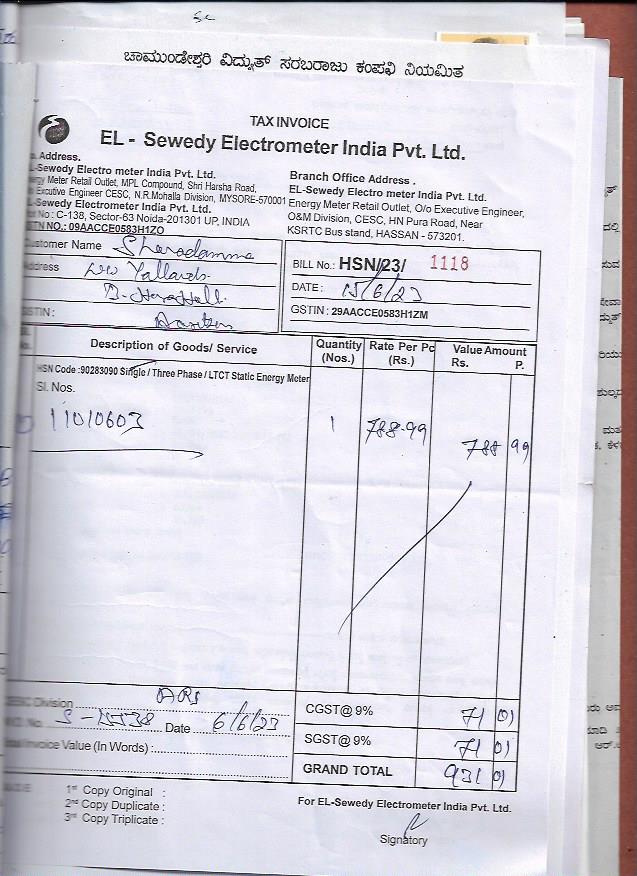 ಚಾಮುಂಡೇಶ್ವರಿ ವಿದ್ಯುತ್ ಸರಬರಾಜು ಕಂಪನಿ ನಿಯಮಿತ
TAX INVOICE
EL - Sewedy Electrometer India Pvt. Ltd.
Address.
L-Sewedy Electro meter India Pvt. Ltd.
Meter Retail Outlet, MPL Compound, Shri Harsha Road,
Excutive Engineer CESC, N.R.Mohalla Division, MYSORE-570001
L-Sewedy Electrometer India Pvt. Ltd.
No : C-138, Sector-63 Noida-201301 UP, INDIA
STN NO.: 09AACCE0583H1ZO
Branch Office Address .
EL-Sewedy Electro meter India Pvt. Ltd.
Energy Meter Retail Outlet, O/o Executive Engineer,
O&M Division, CESC, HN Pura Road, Near
KSRTC Bus stand, HASSAN - 573201.
ustomer Name Sharadamma
ddress
STIN :
BILL No.: HSN/23/ 1118
DATE : 15/6/23
GSTIN : 29AACCE0583H1ZM
Description of Goods/ Service Quantity (Nos.) Rate Per Pc (Rs.) Value Amount Rs. P.
HSN Code :90283090 Single / Three Phase / LTCT Static Energy Meter
Sl. Nos.
11010603 1 788-99 788 99
Division ARS
No. Date 6/6/23
Invoice Value (In Words) :
CGST@ 9% 71 01
SGST@ 9% 71 01
GRAND TOTAL 931 01
1st Copy Original :
2nd Copy Duplicate :
3rd Copy Triplicate :
For EL-Sewedy Electrometer India Pvt. Ltd.
Signatory